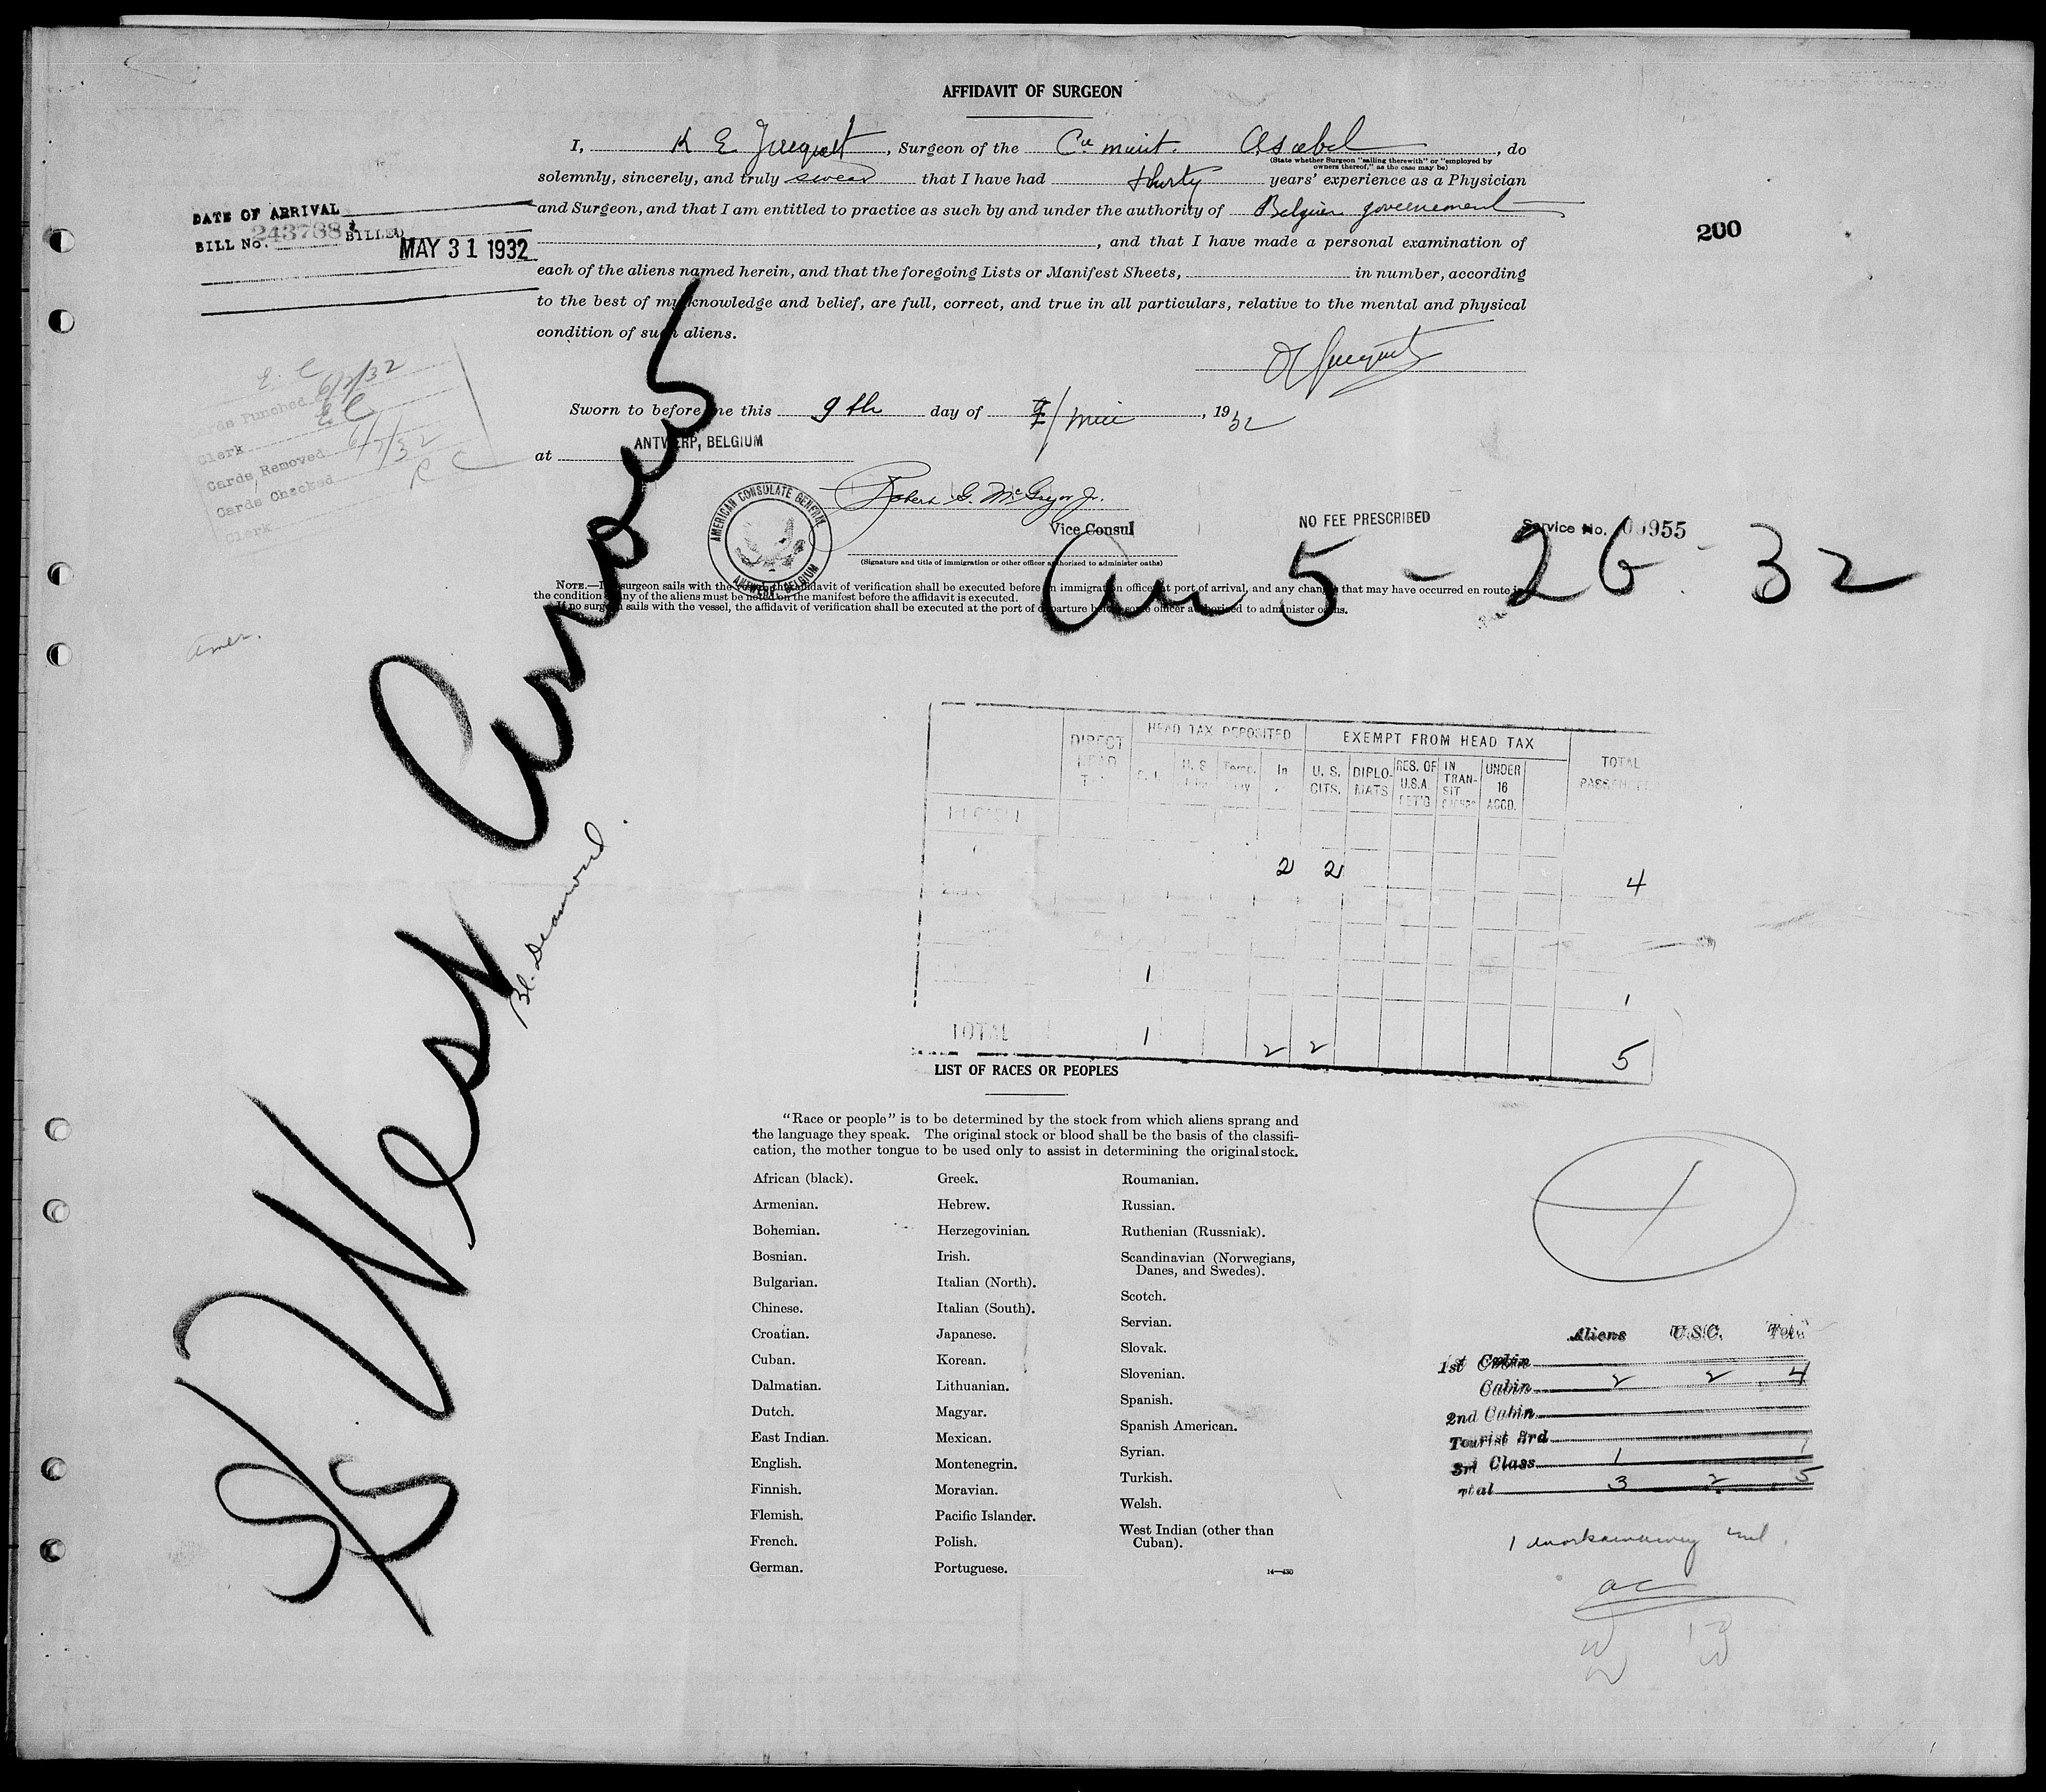 AFFIDAVIT OF SURGEON
I, , Surgeon of the , do
(State whether Surgeon "sailing therewith" or "employed by
owners thereof," as the case may be)
solemnly, sincerely, and truly swear that I have had thirty years' experience as a Physician
and Surgeon, and that I am entitled to practice as such by and under the authority of Belgian governement
, and that I have made a personal examination of
each of the aliens named herein, and that the foregoing Lists or Manifest Sheets, in number, according
to the best of my knowledge and belief, are full, correct, and true in all particulars, relative to the mental and physical
condition of such aliens.
DATE OF ARRIVAL
BILL No. 243788 BILLED MAY 31 1932
200
E C
Cards Punched 6/2/32
Clerk EC
Cards Removed 6/7/32
Cards Checked R C
Clerk
Sworn to before me this 9th day of , 1932
at ANTWERP, BELGIUM
AMERICAN CONSULATE GENERAL
ANTWERP, BELGIUM
Robert G. McGregor Jr.
Vice Consul
(Signature and title of immigration or other officer authorised to administer oaths)
NO FEE PRESCRIBED
Service No. 955
5-26-32
NOTE.—If surgeon sails with the vessel, the affidavit of verification shall be executed before an immigration officer at port of arrival, and any change that may have occurred en route in
the condition of any of the aliens must be noted on the manifest before the affidavit is executed.
If no surgeon sails with the vessel, the affidavit of verification shall be executed at the port of departure before some officer authorised to administer oaths.
Amer.
SS West
DIRECT HEAD TAX
HEAD TAX DEPOSITED
EXEMPT FROM HEAD TAX
TOTAL PASSEN
U. S. CITS.
DIPLOMATS
RES. OF U.S.A. RET'G
IN TRANSIT
UNDER 16 ACCD.
2 2 4
1 1
TOTAL 1 2 2 5
LIST OF RACES OR PEOPLES
"Race or people" is to be determined by the stock from which aliens sprang and
the language they speak. The original stock or blood shall be the basis of the classifi-
cation, the mother tongue to be used only to assist in determining the original stock.
African (black).
Armenian.
Bohemian.
Bosnian.
Bulgarian.
Chinese.
Croatian.
Cuban.
Dalmatian.
Dutch.
East Indian.
English.
Finnish.
Flemish.
French.
German.
Greek.
Hebrew.
Herzegovinian.
Irish.
Italian (North).
Italian (South).
Japanese.
Korean.
Lithuanian.
Magyar.
Mexican.
Montenegrin.
Moravian.
Pacific Islander.
Polish.
Portuguese.
Roumanian.
Russian.
Ruthenian (Russniak).
Scandinavian (Norwegians,
Danes, and Swedes).
Scotch.
Servian.
Slovak.
Slovenian.
Spanish.
Spanish American.
Syrian.
Turkish.
Welsh.
West Indian (other than
Cuban).
14—430
Aliens U.S.C.
1st Cabin
Cabin 2 2 4
2nd Cabin
Tourist 3rd
3rd Class 1 1
Total 3 2 5
1 workaway